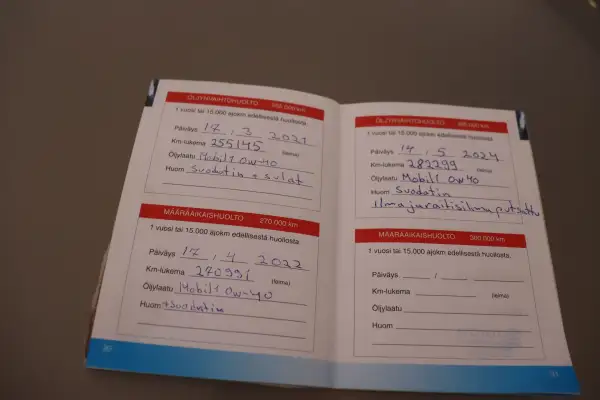 ÖLJYNVAIHTOHUOLTO 255 000 km
1 vuosi tai 15.000 ajokm edellisestä huollosta.
Päiväys 17 . 3 2021
Km-lukema 255145 (leima)
Öljylaatu Mobil1 0W-40
Huom Suodatin + sulat
MÄÄRÄAIKAISHUOLTO 270 000 km
1 vuosi tai 15.000 ajokm edellisestä huollosta.
Päiväys 17 / 4 2022
Km-lukema 270991 (leima)
Öljylaatu Mobil1 0W-40
Huom +Suodatin
30
ÖLJYNVAIHTOHUOLTO 285 000 km
1 vuosi tai 15.000 ajokm edellisestä huollosta.
Päiväys 14 . 5 2024
Km-lukema 282299 (leima)
Öljylaatu Mobil1 0W40
Huom Suodatin
Ilma ja raitisilma putsattu
MÄÄRÄAIKAISHUOLTO 300 000 km
1 vuosi tai 15.000 ajokm edellisestä huollosta.
Päiväys /
Km-lukema (leima)
Öljylaatu
Huom
31